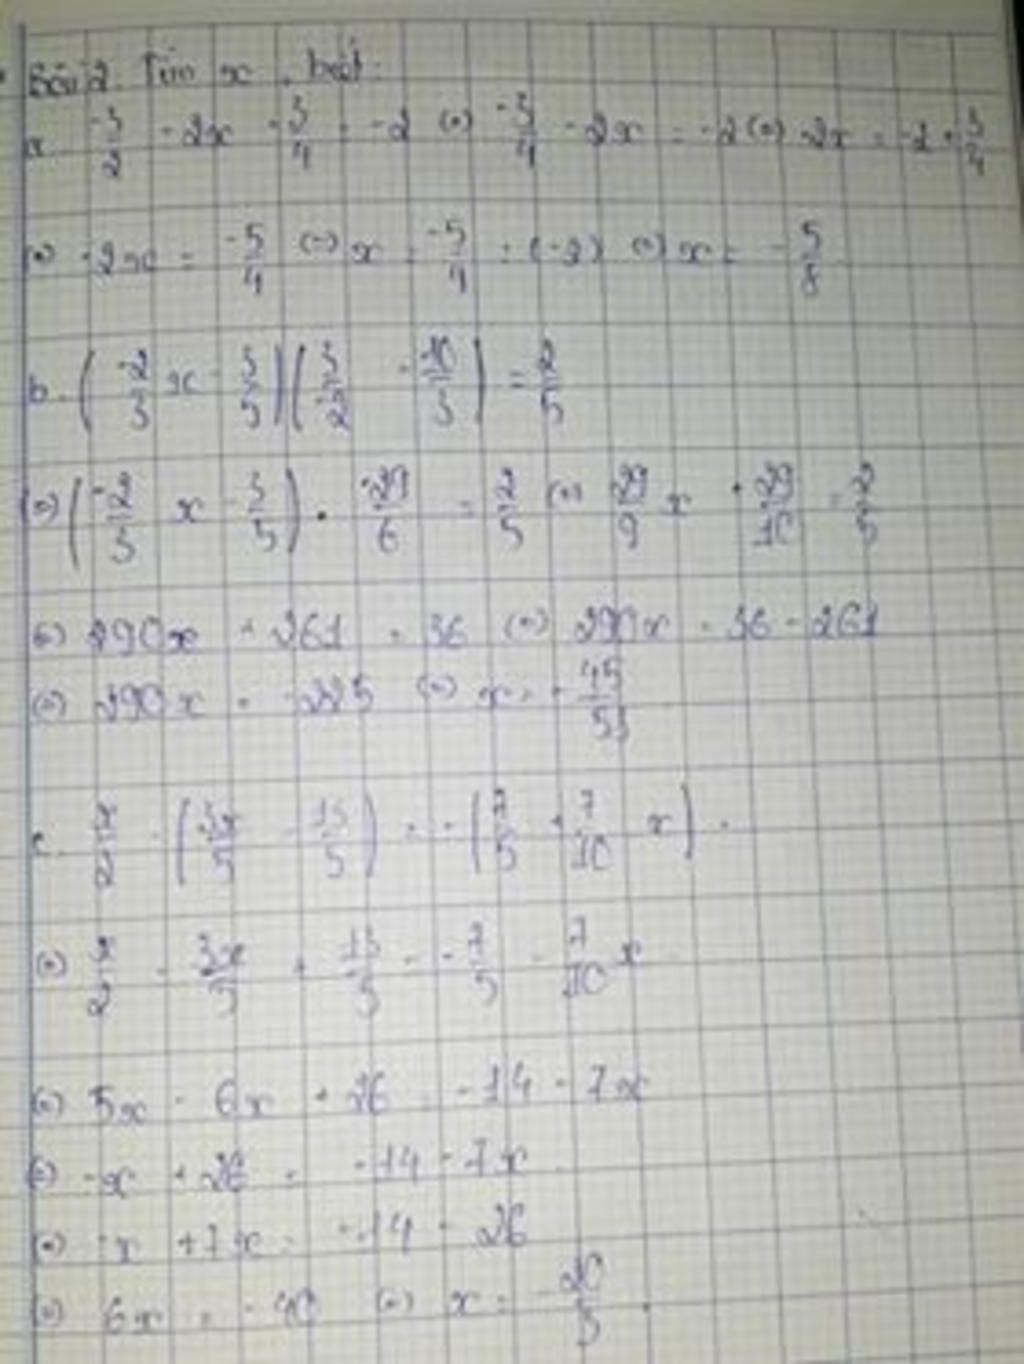 Bài 2. Tìm x, biết:
a. -3/2 - 2x + 3/4 = -2 (=) -3/4 - 2x = -2 (=) -2x = -2 + 3/4
(=) -2x = -5/4 (=) x = -5/4 : (-2) (=) x = 5/8
b. (-2/3 x - 3/5)(3/-2 - 10/3) = 2/5
(=) (-2/3 x - 3/5) . -29/6 = 2/5 (=) 29/9 x + 29/10 = 2/5
(=) 290x + 261 = 36 (=) 290x = 36 - 261
(=) 290x = -225 (=) x = -45/58
c. x/2 - (3x/5 - 13/5) = -(7/5 + 7/10 x).
(=) x/2 - 3x/5 + 13/5 = -7/5 - 7/10 x
(=) 5x - 6x + 26 = -14 - 7x
(=) -x + 26 = -14 - 7x
(=) -x + 7x = -14 - 26
(=) 6x = -40 (=) x = -20/3.